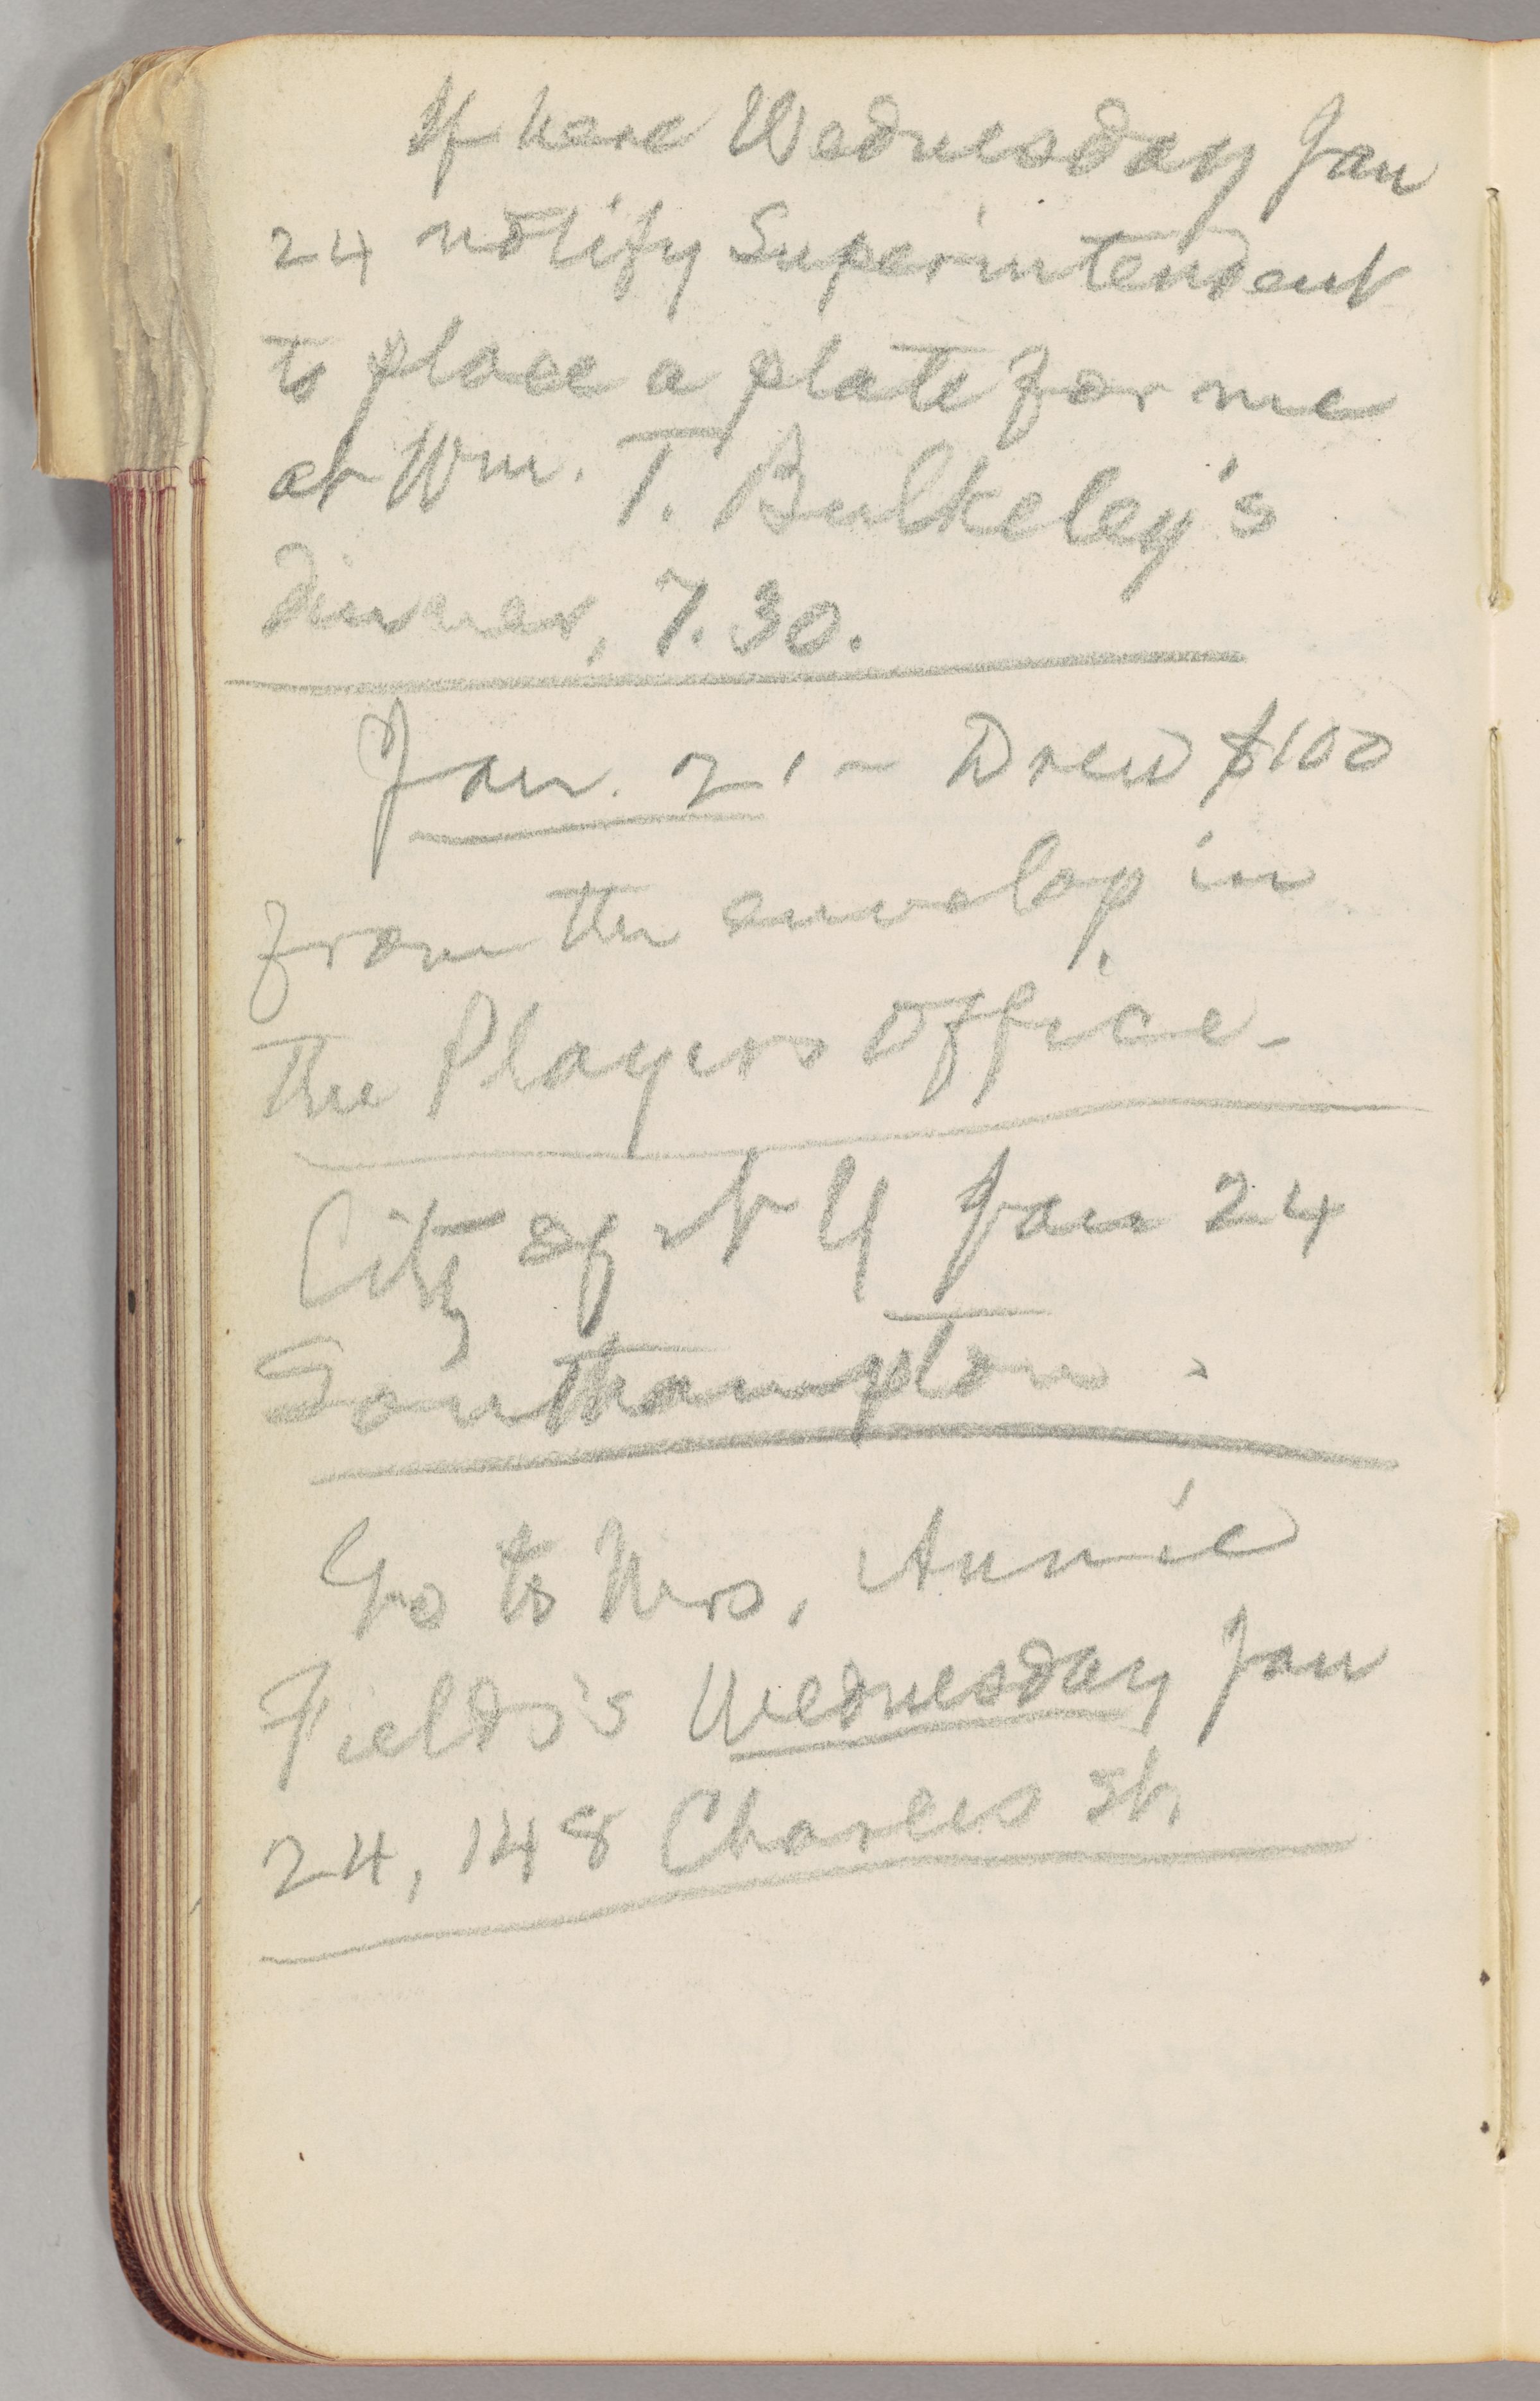 If here Wednesday Jan
24 notify Superintendent
to place a plate for me
at Wm. T. Bulkeley's
dinner, 7.30.
Jan. 21 – Drew $100
from the envelop in
the Players Office.
City of N Y Jan 24
Southampton.
Go to Mrs. Annie
Fields's Wednesday Jan
24, 148 Charles St.